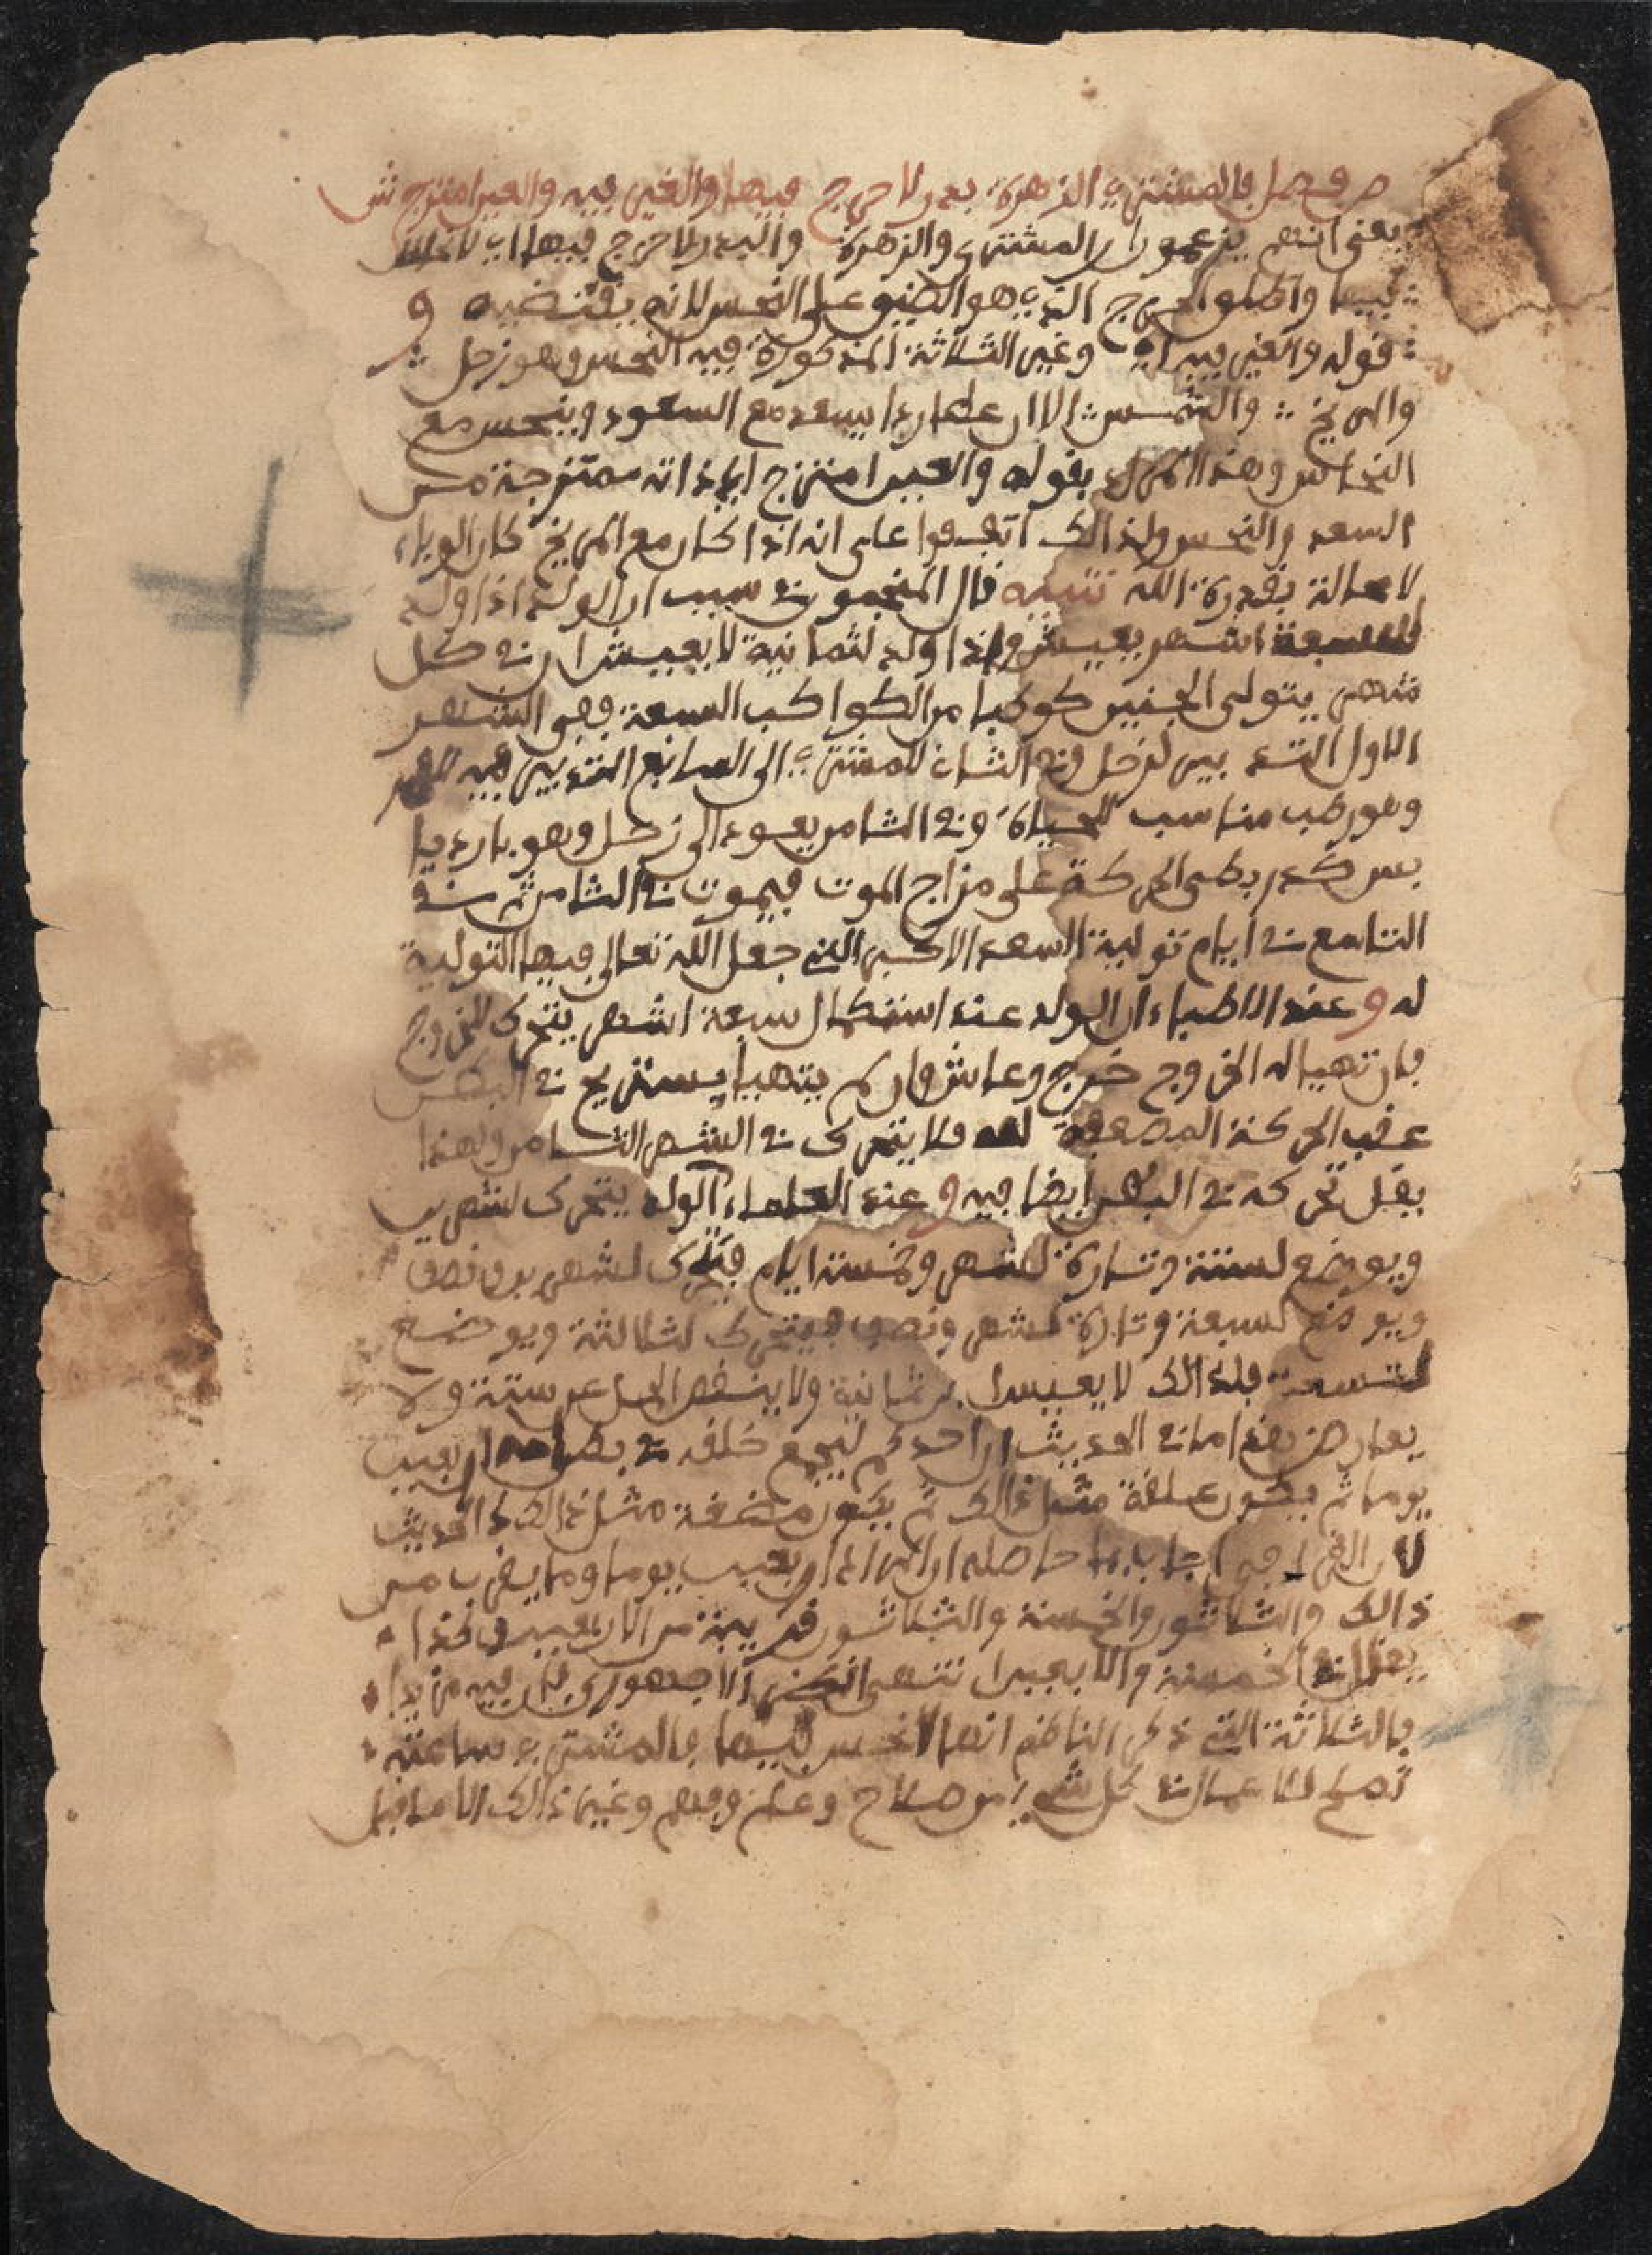 ص فصل فالمشتري الزهرة بدر لا حرج فيها والغير فيه والعير امتزج ش
يعني انهم يزعمون ان المشتري والزهرة والبدر لا حرج فيها اي لا نحس
فيها واطلق الحرج الذي هو الضيق على النحس لانه يقتضيه و
قوله والغير فيه اي وغير الثلاثة المذكورة فيه النحس وهو زحل
والمريخ والشمس الا ان عطاردا يسعد مع السعود وينحس مع
النحاس وهذا المراد بقوله والعير امتزج اي ذاته ممتزجة من
السعد والنحس ولذالك اتفقوا على انه اذا كان مع المريخ كان الوباء
لا محالة بقدرة الله تنبيه قال المنجمون في سبب ان الولد اذا ولد
لسبعة اشهر يعيش واذا ولد لثمانية لا يعيش ان في كل
شهر يتولى الجنين كوكبا من الكواكب السبعة ففي الشهر
الاول التدبير لزحل وفي الثاني للمشتري الى السابع التدبير فيه للقمر
وهو رطب مناسب للحياة وفي الثامن يعود الى زحل وهو بارد يا
بس كدر بطي الحركة على مزاج الموت فيموت في الثامن ثم في
التاسع في ايام تولية السعد الاكبر الذي جعل الله تعالى فيها التولية
له و عند الاطباء ان الولد عند استكمال سبعة اشهر يتحرك للخروج
فان تهيا له الخروج خرج وعاش وان لم يتهيا يستريح في البطن
عقب الحركة المضعفة له فلا يتحرك في الشهر الثامن ولهذا
يقل تحركه في البطن ايضا فيه و عند العلماء الولد يتحرك لشهرين
ويوضع لستة وتارة لشهر وخمسة ايام فيتحرك لشهرين ونصف
ويوضع لسبعة وتارة لشهر ونصف فيتحرك لثالثة ويوضع
لتسعة فلذالك لا يعيش ابن ثمانية ولا ينقص الحمل عن ستة ولا
يعارض هذا ما في الحديث ان احدكم ليجمع خلقه في بطن امه اربعين
يوما ثم يكون علقة مثل ذالك ثم يكون مضغة مثل ذالك الحديث
لان القرافي اجاب بما حاصله ان المراد اربعين يوما وما يقرب من
ذالك والثلاثون والخمسة والثلاثون قريبة من الاربعين وكذا
الخمسة والاربعين انتهى الاجهوري
فالثلاثة التي ذكر الناظم انها لا نحس فيها فالمشتري ساعته
تصلح للاعمال في كل شيء من صلاح وعلم وفهم وغير ذالك الا ما قيل